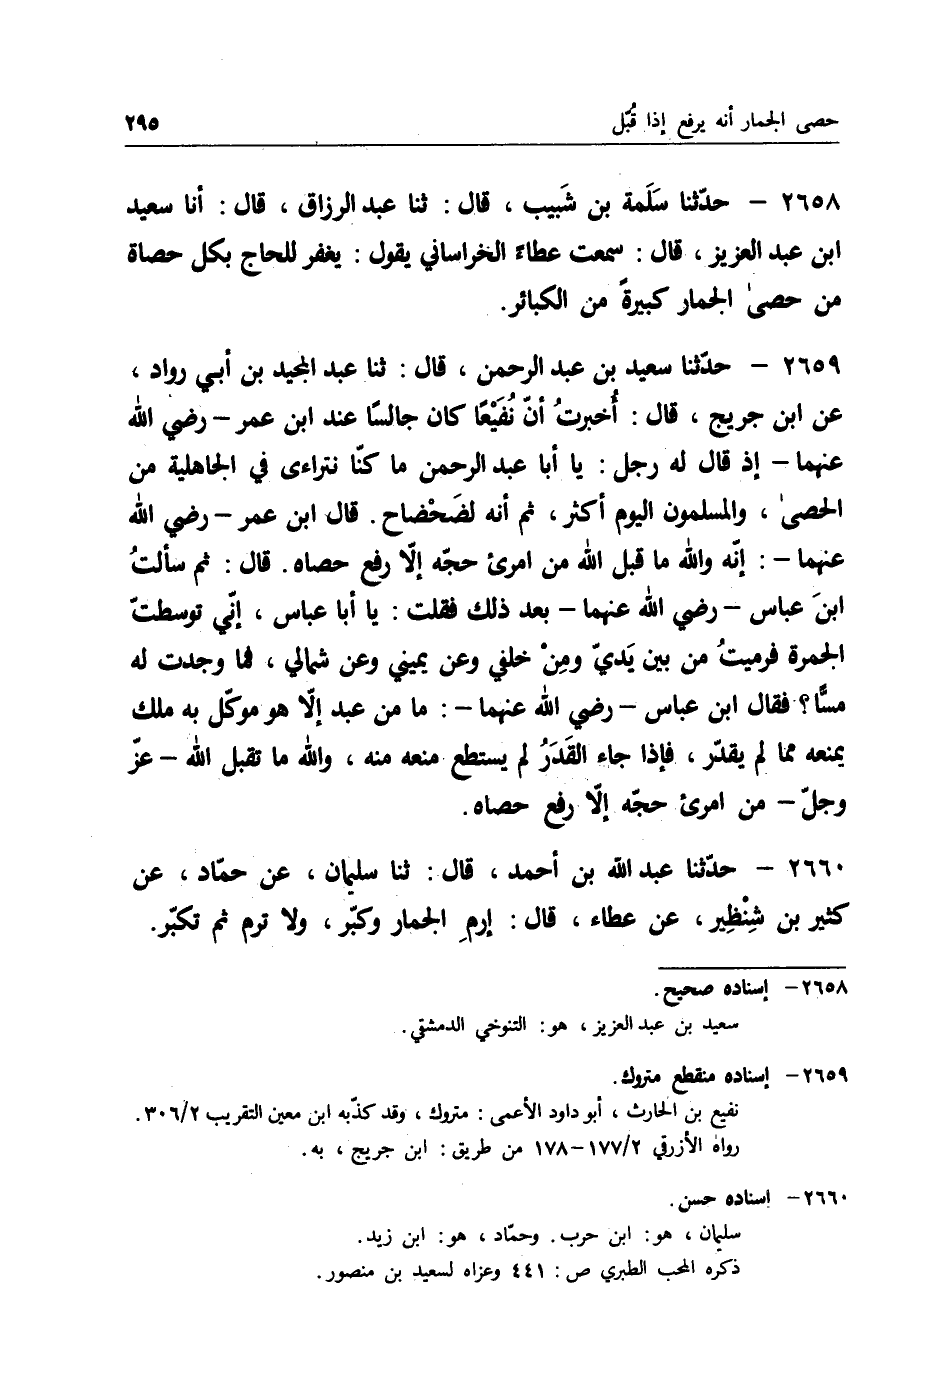 حصى الجمار أنه يرفع إذا قُبّل ٢٩٥
٢٦٥٨ – حدّثنا سَلَمة بن شَبيب ، قال : ثنا عبد الرزاق ، قال : أنا سعيد
ابن عبد العزيز ، قال : سمعت عطاءً الخراساني يقول : يغفر للحاج بكل حصاة
من حصىٰ الجمار كبيرةً من الكبائر.
٢٦٥٩ – حدّثنا سعيد بن عبد الرحمن ، قال : ثنا عبد المجيد بن أبي رواد ،
عن ابن جريج ، قال : أُخبرتُ أنّ نُفَيْعًا كان جالسًا عند ابن عمر – رضي الله
عنهما – إذ قال له رجل : يا أبا عبد الرحمن ما كنّا نتراءى في الجاهلية من
الحصىٰ ، والمسلمون اليوم أكثر ، ثم أنه لضَحْضاح. قال ابن عمر – رضي الله
عنهما – : إنّه والله ما قبل الله من امرئ حجّه إلّا رفع حصاه. قال : ثم سألتُ
ابنَ عباس – رضي الله عنهما – بعد ذلك فقلت : يا أبا عباس ، إنّي توسطتّ
الجمرة فرميتُ من بين يَديّ ومِنْ خلفي وعن يميني وعن شمالي ، فما وجدت له
مسًّا؟ فقال ابن عباس – رضي الله عنهما – : ما من عبد إلّا هو موكّل به ملك
يمنعه مما لم يقدّر ، فإذا جاء القَدَرُ لم يستطع منعه منه ، والله ما تقبل الله – عزّ
وجلّ – من امرئ حجّه إلّا رفع حصاه.
٢٦٦٠ – حدّثنا عبد الله بن أحمد ، قال : ثنا سليمان ، عن حمّاد ، عن
كثير بن شِنْظِير ، عن عطاء ، قال : إرمِ الجمار وكبّر ، ولا ترم ثم تكبّر.
٢٦٥٨ – إسناده صحيح.
سعيد بن عبد العزيز ، هو : التنوخي الدمشقي.
٢٦٥٩ – إسناده منقطع متروك.
نفيع بن الحارث ، أبو داود الأعمى : متروك ، وقد كذّبه ابن معين التقريب ٣٠٦/٢.
رواه الأزرقي ١٧٧/٢–١٧٨ من طريق : ابن جريج ، به.
٢٦٦٠ – اسناده حسن.
سليمان ، هو : ابن حرب. وحمّاد ، هو : ابن زيد.
ذكره المحب الطبري ص : ٤٤١ وعزاه لسعيد بن منصور.